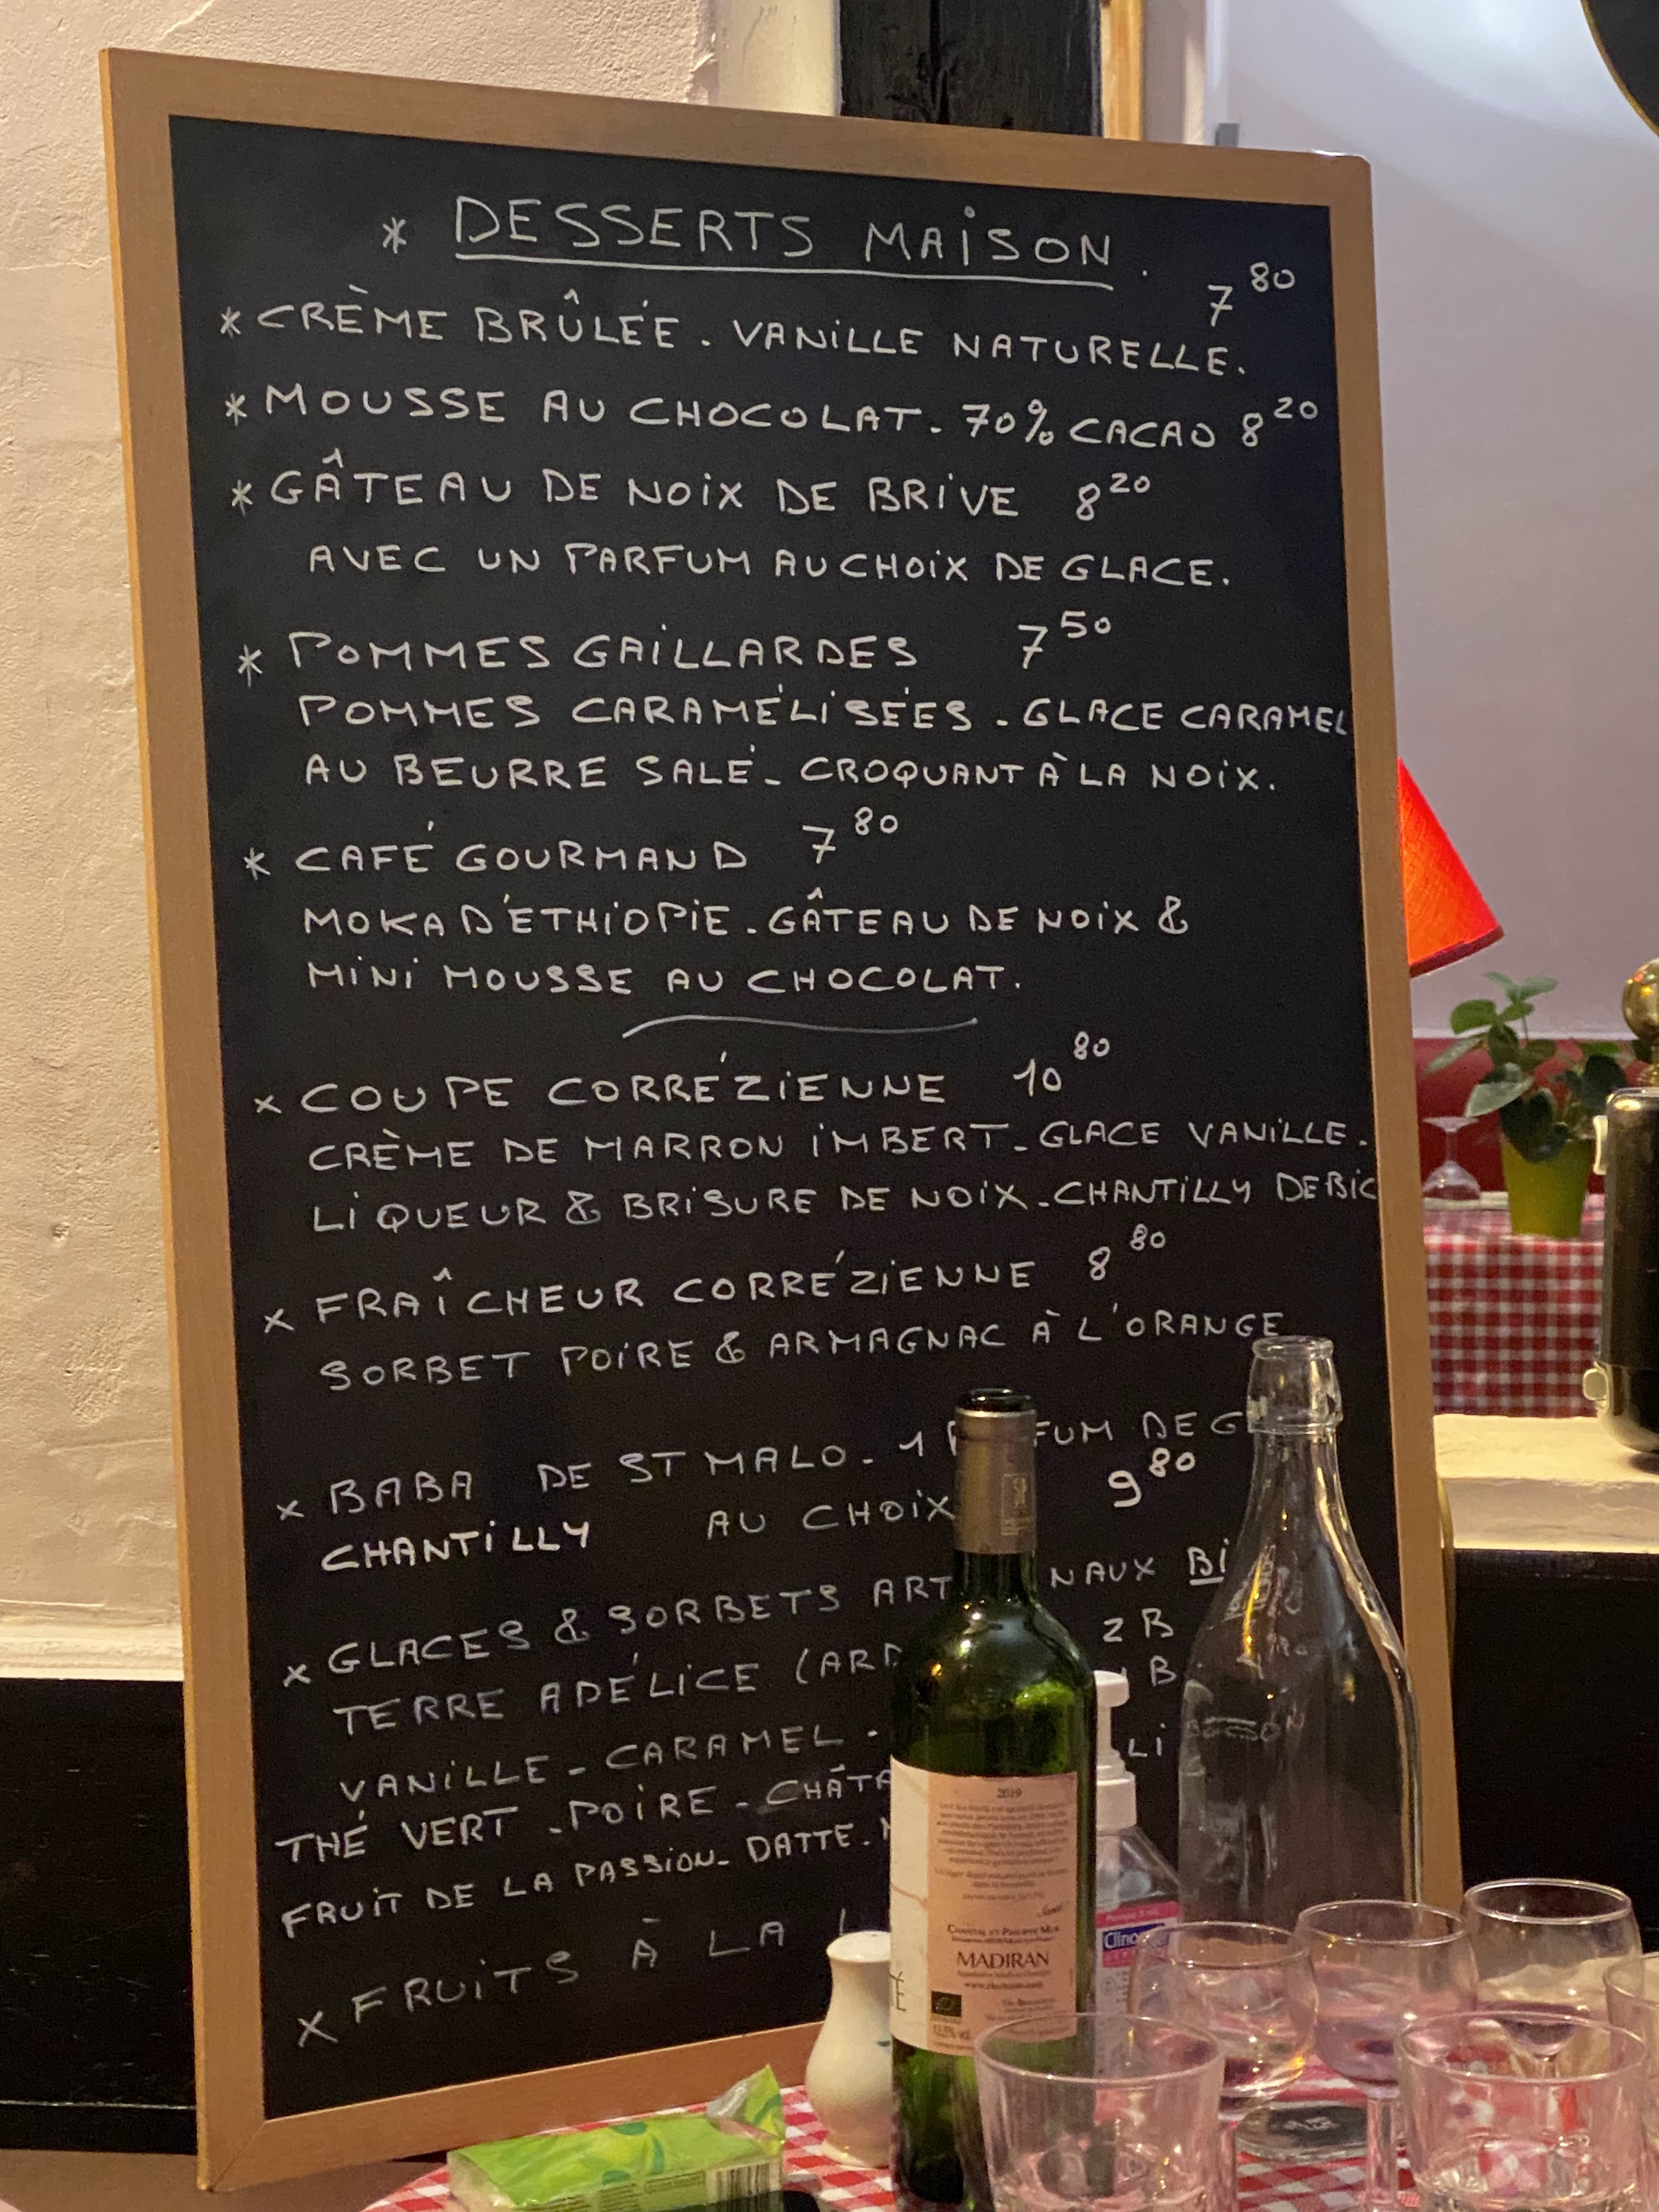 * DESSERTS MAISON.
* CRÈME BRÛLÉE. VANILLE NATURELLE. 7 80
* MOUSSE AU CHOCOLAT. 70% CACAO 8 20
* GÂTEAU DE NOIX DE BRIVE 8 20
AVEC UN PARFUM AU CHOIX DE GLACE.
* POMMES GAILLARDES 7 50
POMMES CARAMÉLISÉES. GLACE CARAMEL
AU BEURRE SALÉ - CROQUANT À LA NOIX.
* CAFÉ GOURMAND 7 80
MOKA D'ÉTHIOPIE. GÂTEAU DE NOIX &
MINI MOUSSE AU CHOCOLAT.
x COUPE CORRÉZIENNE 10 80
CRÈME DE MARRON IMBERT - GLACE VANILLE.
LIQUEUR & BRISURE DE NOIX - CHANTILLY DEBIC
x FRAÎCHEUR CORRÉZIENNE 8 80
SORBET POIRE & ARMAGNAC À L'ORANGE
x BABA DE ST MALO - 1 DE
CHANTILLY AU CHOIX 9 80
x GLACES & SORBETS
TERRE ADÉLICE 2 B
VANILLE - CARAMEL -
THÉ VERT - POIRE -
FRUIT DE LA PASSION - DATTE.
x FRUITS À LA
2019
MADIRAN